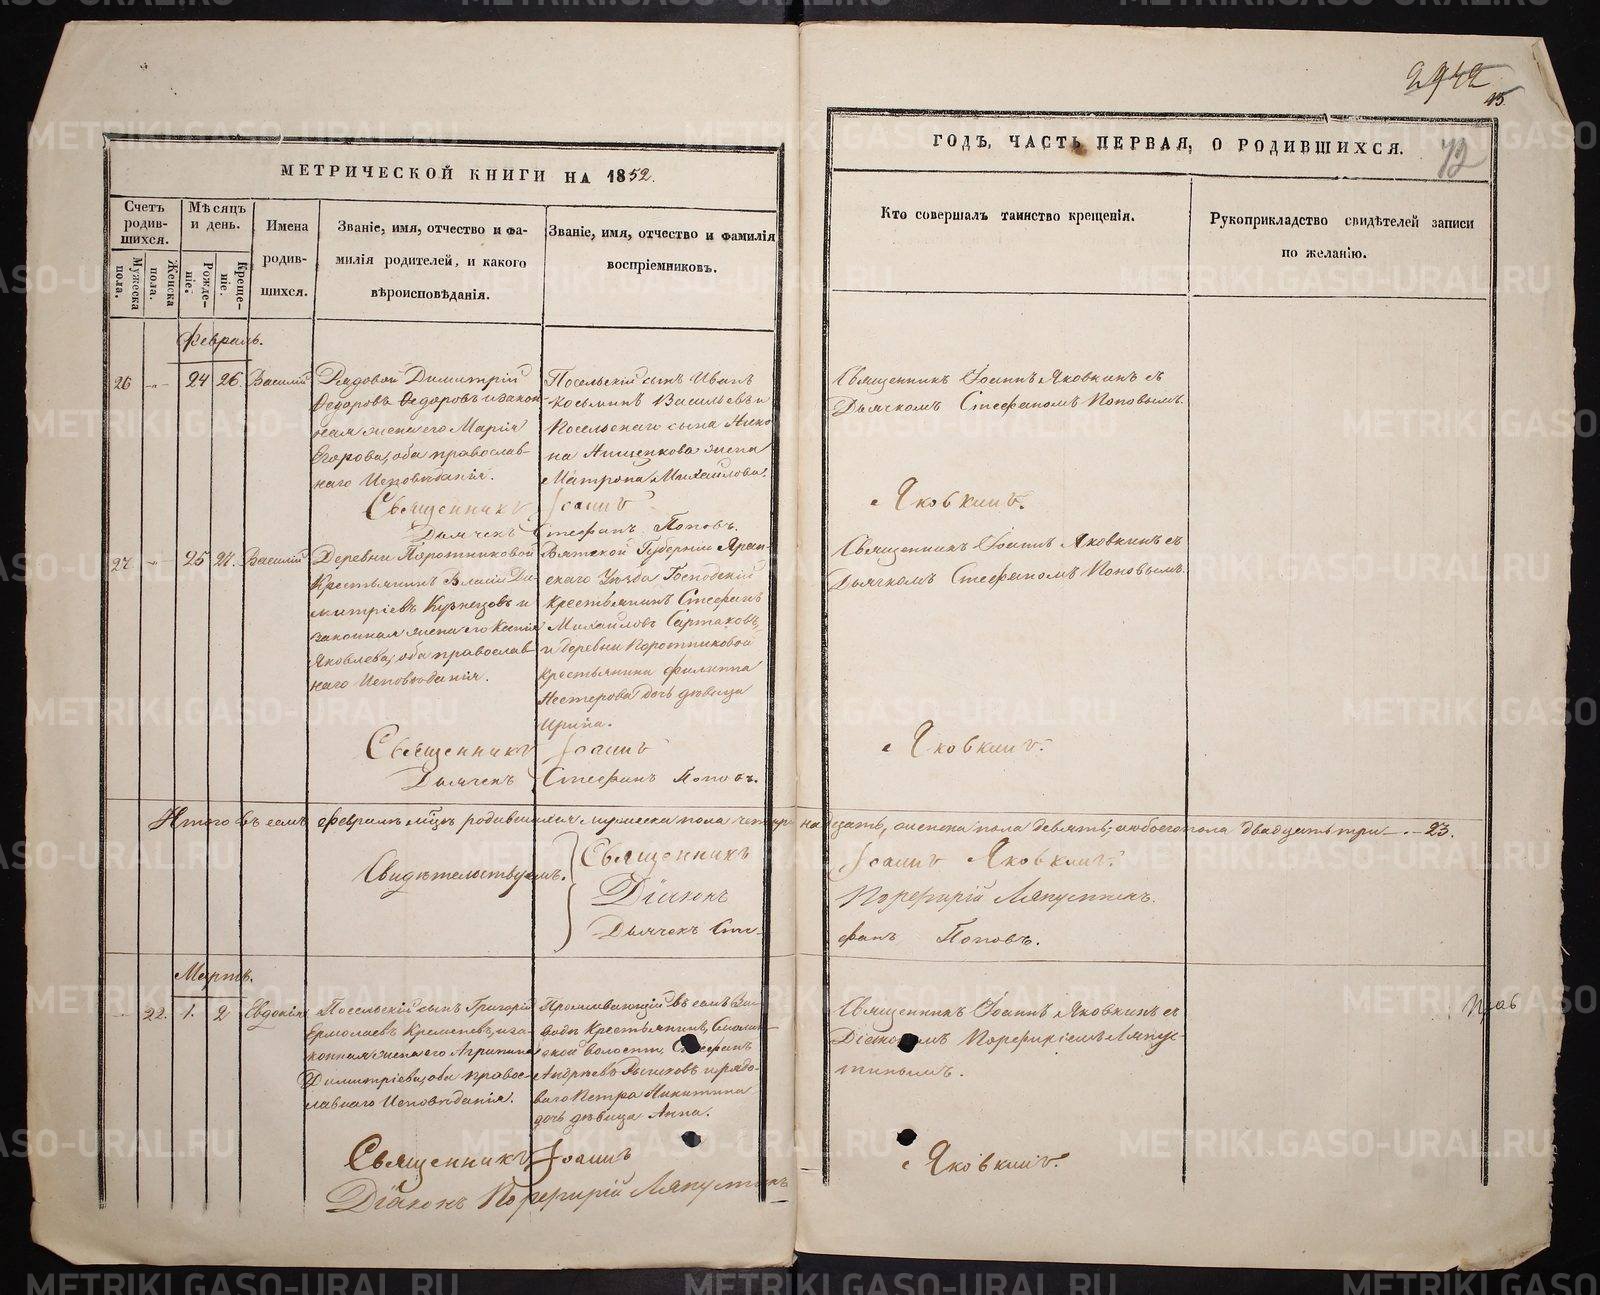 2942
15
72
МЕТРИЧЕСКОЙ КНИГИ НА 1852.
ГОДЪ, ЧАСТЬ ПЕРВАЯ, О РОДИВШИХСЯ.
Счетъ родив-шихся.
Мужеска пола.
Женска пола.
Мѣсяцъ и день.
Рожде-ніе.
Креще-ніе.
Имена родив-шихся.
Званіе, имя, отчество и фа-
милія родителей, и какого
вѣроисповѣданія.
Званіе, имя, отчество и фамилія
воспріемниковъ.
Кто совершалъ таинство крещенія.
Рукоприкладство свидѣтелей записи
по желанію.
Февраль.
26 -„- 24 26. Василій
Рядовой Димитрій
Ѳедоровъ Ѳедоровъ и закон
ная жена его Марія
Егорова, оба православ-
наго Исповѣданія.
Посельскій сынъ Иванъ
Косьминъ Васильевъ и
Посельскаго сына
на Анщенкова жена
Матрона Михайлова.
Священникъ Іоаннъ Яковкинъ съ
Дьячкомъ Стефаномъ Поповымъ.
Священникъ Іоаннъ Яковкинъ.
Дьячекъ Стефанъ Поповъ.
27. -„- 25 27. Василій
Деревни Поротниковой
Крестьянинъ Власій Ди-
митріевъ Кузнецовъ и
законная жена его Ксенія
Яковлева, оба православ-
наго Исповѣданія.
Вятской Губерніи Яран-
скаго Уѣзда Господскій
крестьянинъ Стефанъ
Михайловъ Сартаковъ,
и деревни Поротниковой
крестьянина Филиппа
Нестерова дочь дѣвица
Ирина.
Священникъ Іоаннъ Яковкинъ съ
Дьячкомъ Стефаномъ Поповымъ.
Священникъ Іоаннъ Яковкинъ.
Дьячекъ Стефанъ Поповъ.
Итого въ семъ февралѣ мцѣ родившихся мужеска пола четырнадцать, женска пола девять, а обоего пола двадцать три —.— 23.
Свидѣтельствуемъ.
Священникъ Іоаннъ Яковкинъ.
Діаконъ Порфирій Ляпустинъ.
Дьячекъ Сте-фанъ Поповъ.
Мартъ.
22. 1. 2 Евдокія
Посельскій сынъ Григорій
Ермолаевъ Кременевъ, и за-
конная жена его Агрипина
Димитріева, оба правос-
лавнаго Исповѣданія.
Проживающій въ семъ За-
водѣ Крестьянинъ,
ской волости, Стефанъ
Андреевъ и рядо-
ваго Петра Никитина
дочь дѣвица Анна.
Священникъ Іоаннъ Яковкинъ съ
Діакономъ Порфиріемъ Ляпус-
тинымъ.
Священникъ Іоаннъ Яковкинъ.
Діаконъ Порфирій Ляпустинъ
METRIKI.GASO-URAL.RU